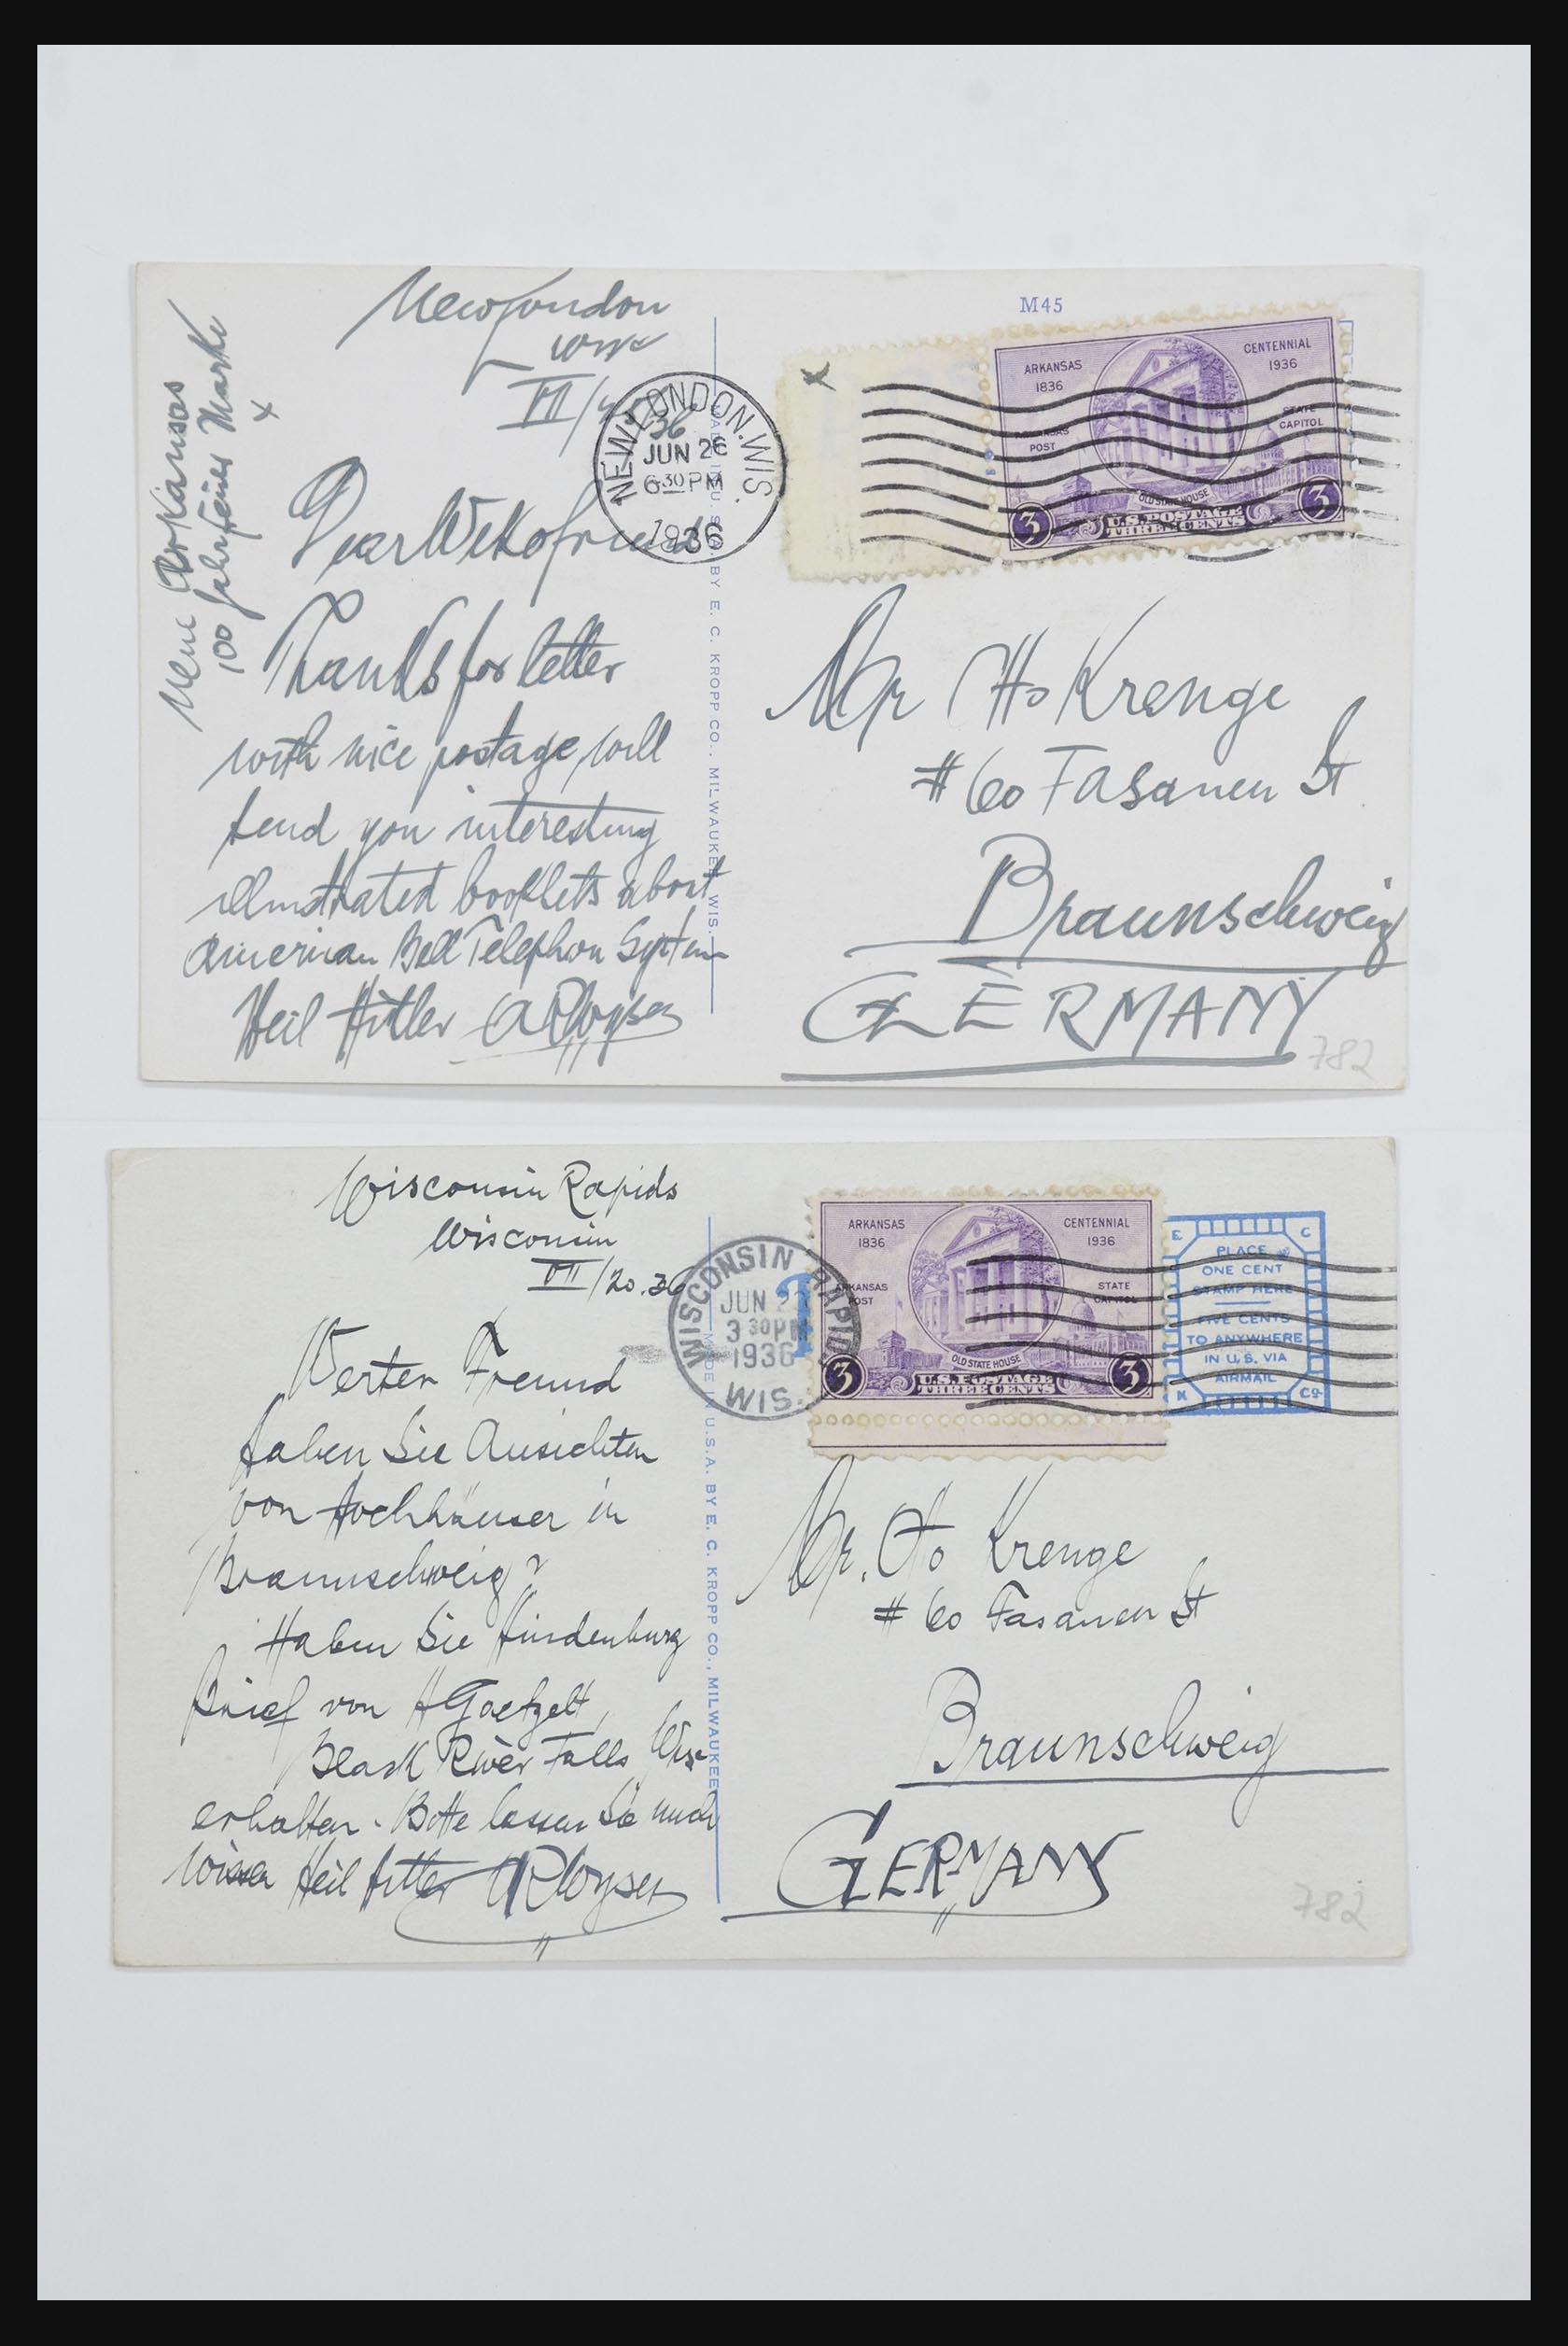 New London
Wis
VI/
36
Neue Arkansas
100 Jahrfeier Marke
x
NEW LONDON. WIS.
JUN 26
6 30 PM
1936
M45
x
ARKANSAS
1836
CENTENNIAL
1936
ARKANSAS
POST
STATE
CAPITOL
OLD STATE HOUSE
3 U.S. POSTAGE 3
THREE CENTS
Dear Wekofriend
Thanks for letter
with nice postage, will
send you interesting
illustrated booklets about
American Bell Telephon System
Heil Hitler
MADE IN U.S.A. BY E. C. KROPP CO., MILWAUKEE, WIS.
Mr Otto Krenge
#60 Fasanen St
Braunschweig
GERMANY
782
Wisconsin Rapids
Wisconsin
VI/20.36
WISCONSIN RAPIDS
JUN 2
3 30 PM
1936
WIS.
T
ARKANSAS
1836
CENTENNIAL
1936
ARKANSAS
POST
STATE
CAPITOL
OLD STATE HOUSE
3 U.S. POSTAGE 3
THREE CENTS
E. C.
PLACE
ONE CENT
STAMP HERE
FIVE CENTS
TO ANYWHERE
IN U.S. VIA
AIRMAIL
K Co.
Werter Freund
Haben Sie Ansichten
von Hochhäuser in
Braunschweig?
Haben Sie Hindenburg
Brief von A Goetzelt,
Black River Falls Wis
erhalten. Bitte lassen Sie mich
wissen Heil Hitler
MADE IN U.S.A. BY E. C. KROPP CO., MILWAUKEE
Mr. Otto Krenge
# 60 Fasanen St
Braunschweig
GERMANY
782